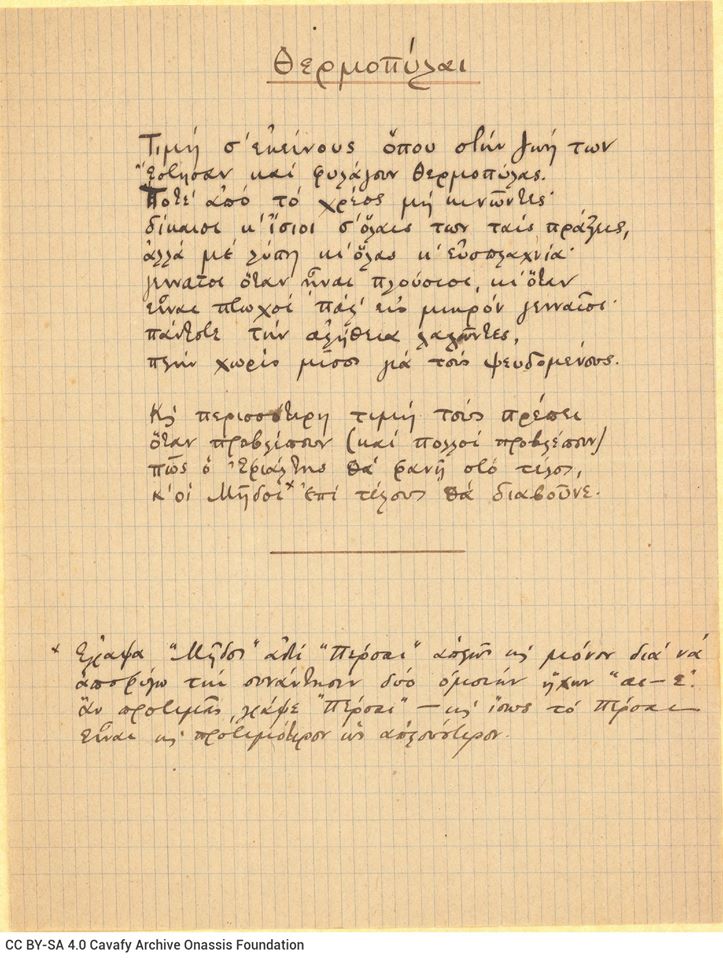 Θερμοπύλαι
Τιμή σ' εκείνους όπου στην ζωή των
Ώρισαν και φυλάγουν Θερμοπύλας.
Ποτέ από το χρέος μη κινώντες·
δίκαιοι κ' ίσιοι σ' όλαις των ταις πράξεις,
αλλά με λύπη κι' όλας κ' ευσπλαχνία·
γενναίοι όταν ήναι πλούσιοι, κι' όταν
είναι πτωχοί πάλ' εις μικρόν γενναίοι·
πάντοτε την αλήθεια λαλώντες,
πλην χωρίς μίσος για τους ψευδομένους.
Και περισσοτέρη τιμή τους πρέπει
όταν προβλέπουν (και πολλοί προβλέπουν)
πως ο Εφιάλτης θα φανή στο τέλος,
κ' οι Μήδοι* επί τέλους θα διαβούνε.
* Έγραψα "Μήδοι" αντί "Πέρσαι" απλώς και μόνον διά να
αποφύγω την συνάντησιν δύο ομοίων ήχων "αι–ε".
αν προτιμάς, γράψε "Πέρσαι" — και ίσως το Πέρσαι
είναι και προτιμότερον ως απλούστερον.